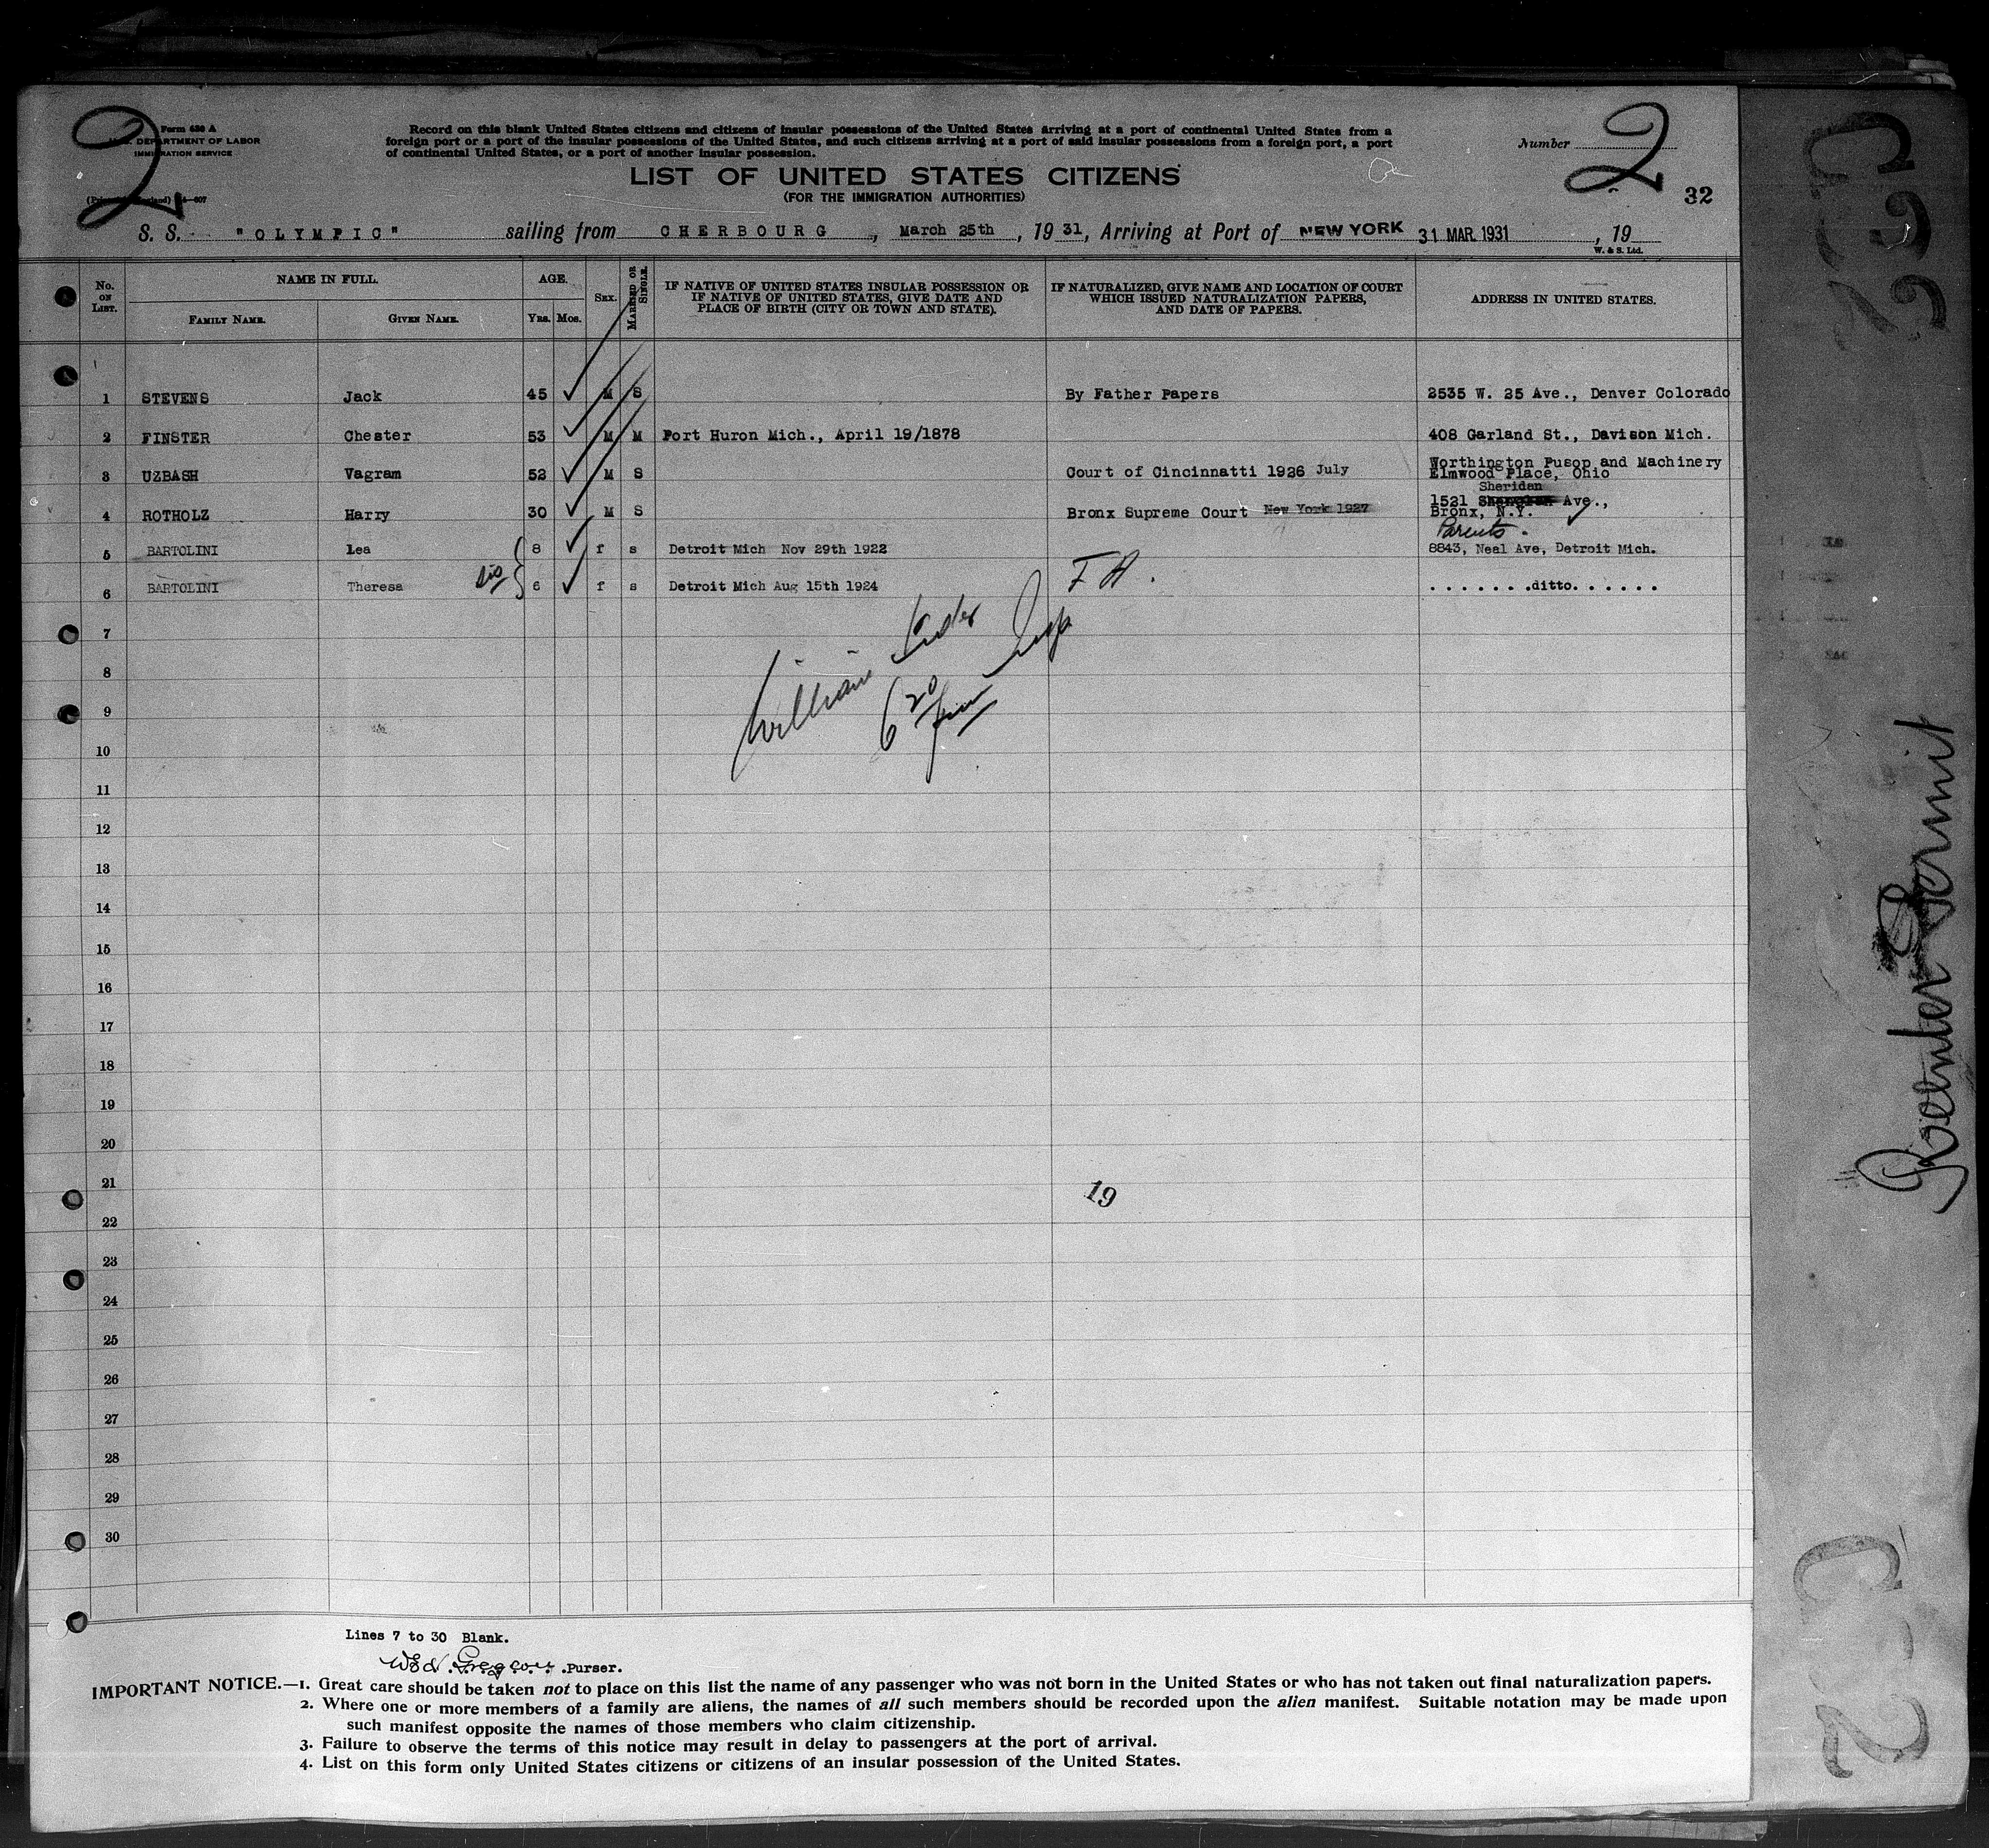 2
Form 630 A
U.S. DEPARTMENT OF LABOR
IMMIGRATION SERVICE
Record on this blank United States citizens and citizens of insular possessions of the United States arriving at a port of continental United States from a
foreign port or a port of the insular possessions of the United States, and such citizens arriving at a port of said insular possessions from a foreign port, a port
of continental United States, or a port of another insular possession.
Number
2
32
LIST OF UNITED STATES CITIZENS
(FOR THE IMMIGRATION AUTHORITIES)
S. S. "OLYMPIC" sailing from CHERBOURG, March 25th, 1931, Arriving at Port of NEW YORK 31 MAR 1931, 19
W. & S. Ltd.
No. ON LIST. NAME IN FULL. AGE. SEX. MARRIED OR SINGLE. IF NATIVE OF UNITED STATES INSULAR POSSESSION OR IF NATIVE OF UNITED STATES, GIVE DATE AND PLACE OF BIRTH (CITY OR TOWN AND STATE). IF NATURALIZED, GIVE NAME AND LOCATION OF COURT WHICH ISSUED NATURALIZATION PAPERS, AND DATE OF PAPERS. ADDRESS IN UNITED STATES.
FAMILY NAME. GIVEN NAME. YRS. MOS.
1 STEVENS Jack 45 M S By Father Papers 2535 W. 25 Ave., Denver Colorado
2 FINSTER Chester 53 M M Port Huron Mich., April 19/1878 408 Garland St., Davison Mich.
3 UZBASH Vagram 52 M S Court of Cincinnatti 1926 July Worthington Pusop and Machinery
Elmwood Place, Ohio
Sheridan
4 ROTHOLZ Harry 30 M S Bronx Supreme Court New York 1927 1521 Ave.,
Bronx, N.Y.
Parents.
5 BARTOLINI Lea 8 f s Detroit Mich Nov 29th 1922 8843, Neal Ave, Detroit Mich.
6 BARTOLINI Theresa sis 6 f s Detroit Mich Aug 15th 1924 F H. . . . . . . .ditto. . . . . .
7
William Insp
8
6 20 pm
9
10
11
12
13
14
15
16
17
18
19
20
21
19
22
23
24
25
26
27
28
29
30
Lines 7 to 30 Blank.
Purser.
IMPORTANT NOTICE.—1. Great care should be taken not to place on this list the name of any passenger who was not born in the United States or who has not taken out final naturalization papers.
2. Where one or more members of a family are aliens, the names of all such members should be recorded upon the alien manifest. Suitable notation may be made upon
such manifest opposite the names of those members who claim citizenship.
3. Failure to observe the terms of this notice may result in delay to passengers at the port of arrival.
4. List on this form only United States citizens or citizens of an insular possession of the United States.
Reenter Permit